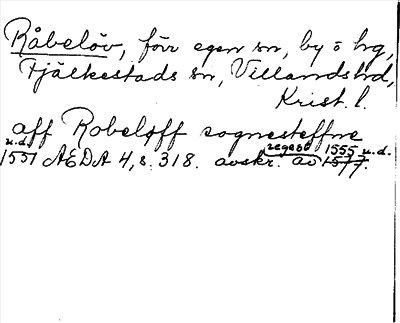 Råbelöv, förr egen sn, by o hg,
Fjälkestads sn, Villands hd,
Krist. l.
aff Robeløff sognesteffne
u.d.
1551 AEDA 4, s. 318. avskr. av 1577.
regest 1555 u.d.